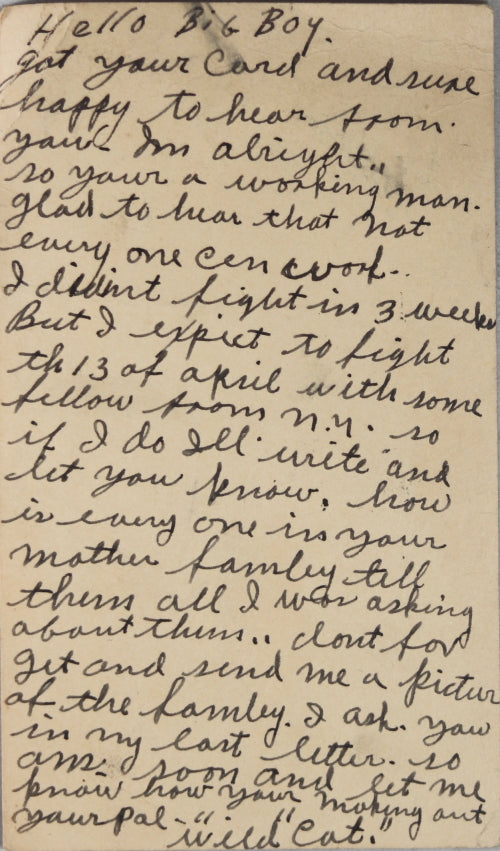 Hello Big Boy.
got your Card and sure
happy to hear from.
you. Im alright..
so your a working man.
glad to hear that not
every one cen work..
I didint fight in 3 weeks
But I expict to fight
th 13 of april with some
fellow from n.y. so
if I do Ill write and
let you know. how
is every one in your
mother famley till
them all I was asking
about them.. dont for
get and send me a pictur
of the famley. I ask. you
in my last letter. so
ans. soon and let me
know how your making out
your pal - "
"Wild Cat."